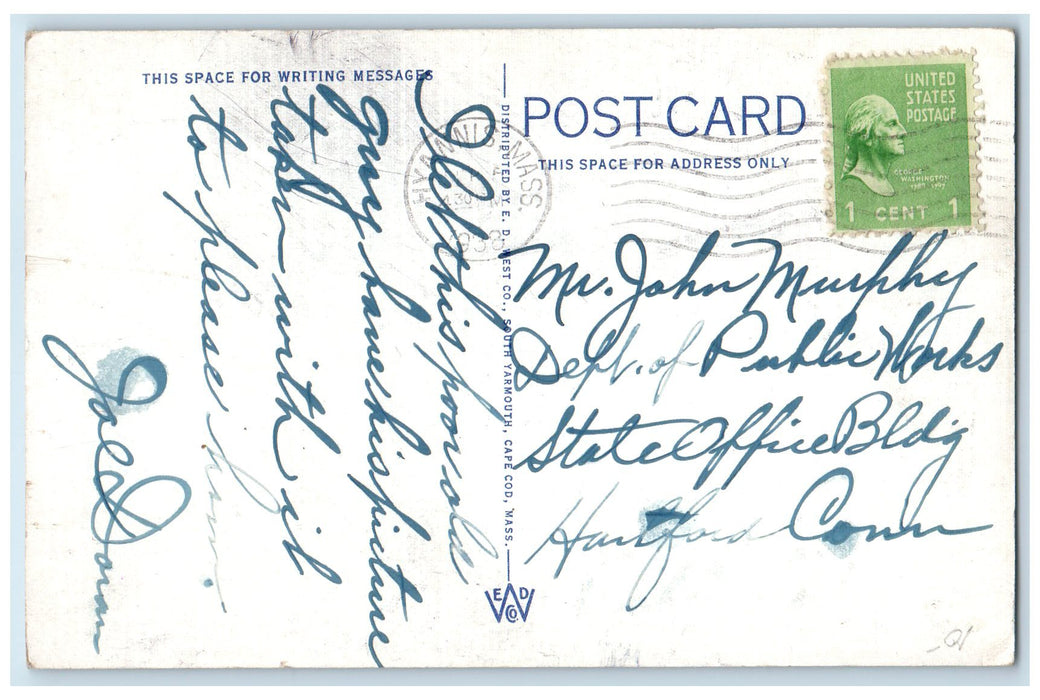 THIS SPACE FOR WRITING MESSAGES
I let this poor old
guy have his picture
taken with it
to please him.
Joe Doran
DISTRIBUTED BY E. D. WEST CO., SOUTH YARMOUTH, CAPE COD, MASS.
E D W Co.
HYANNIS MASS.
1938
POST CARD
THIS SPACE FOR ADDRESS ONLY
UNITED
STATES
POSTAGE
GEORGE
WASHINGTON
1789-1797
1 CENT 1
Mr. John Murphy
Dept. of Public Works
State Office Bldg
Hartford Conn